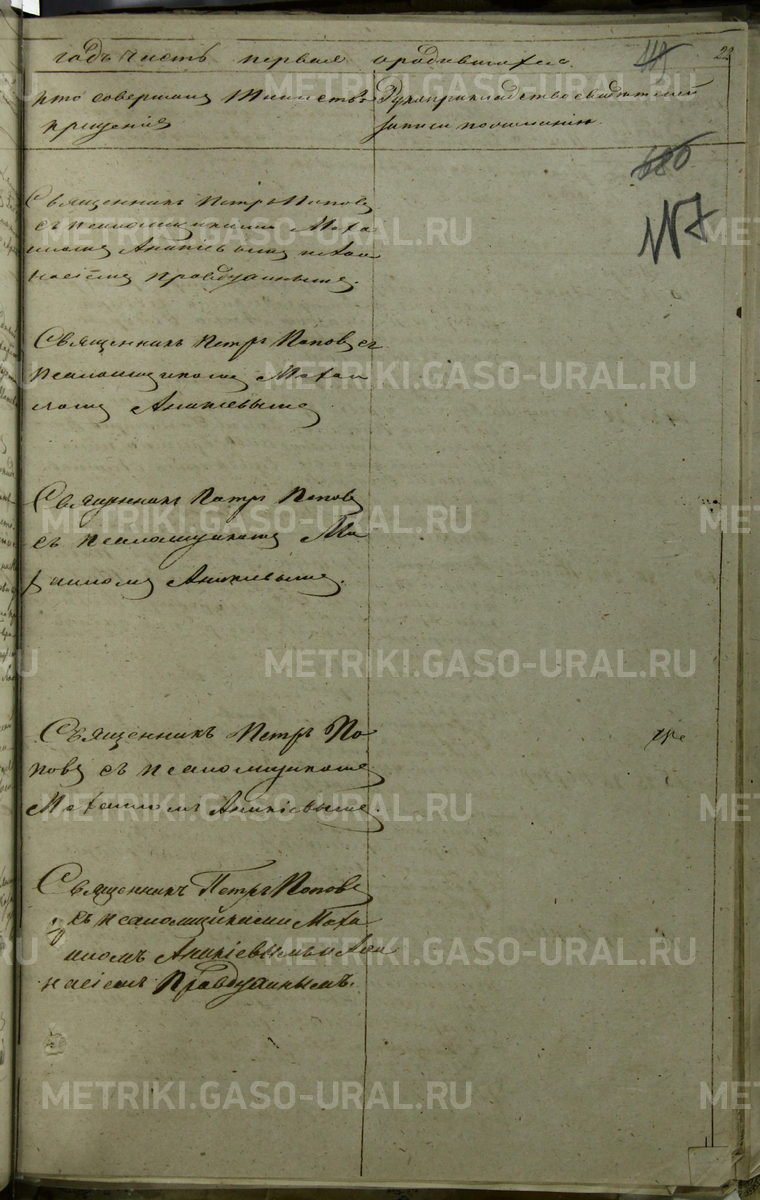 годъ часть первая о родившихся. 22
кто совершалъ таинство Рукоприкладство свидѣтелей
крещенія записи по желанію
Священникъ Петръ Поповъ
съ псаломщиками Миха
иломъ Аникіевымъ и Аѳа
насіемъ Правдухинымъ.
Священникъ Петръ Поповъ съ
псаломщикомъ Михаи
ломъ Аникіевымъ
Священникъ Петръ Поповъ
съ псаломщикомъ Ми
хаиломъ Аникіевымъ.
Священникъ Петръ По
повъ съ псаломщикомъ
Михаиломъ Аникіевымъ.
Священникъ Петръ Поповъ
съ псаломщиками Миха
иломъ Аникіевымъ и Аѳа
насіемъ Правдухинымъ.
METRIKI.GASO-URAL.RU